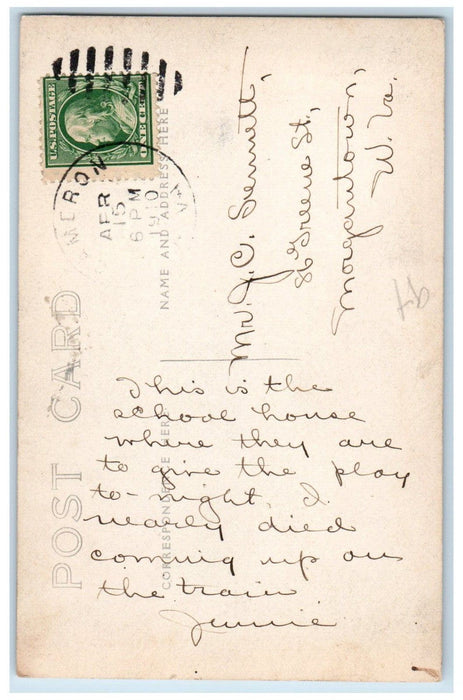 U.S. POSTAGE
ONE CENT
APR
15
6 PM
1910
POST CARD
NAME AND ADDRESS HERE
CORRESPONDENCE HERE
Mr. J. C. Sennett,
Greene St.,
Morgantown,
W. Va.
This is the
school house
where they are
to give the play
to-night. I
nearly died
coming up on
the train
Jennie